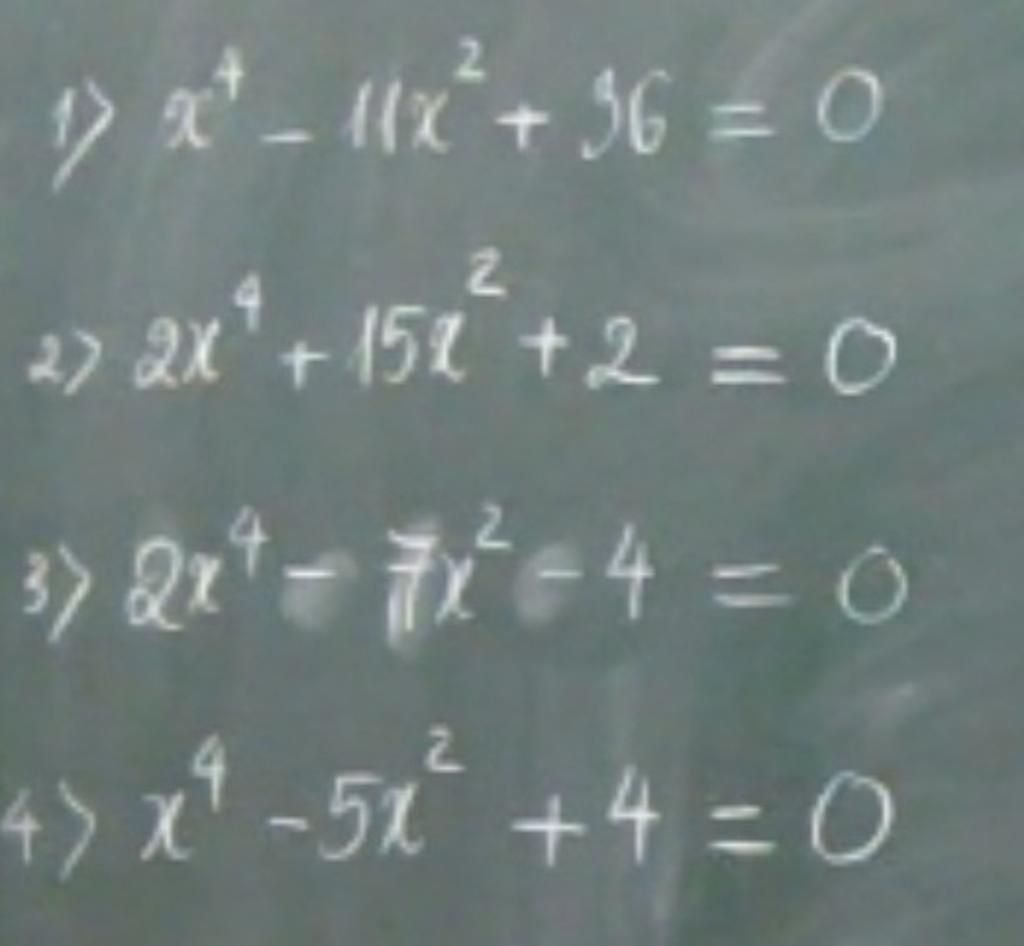 1) x⁴ - 11x² + 36 = 0
2) 2x⁴ + 15x² + 2 = 0
3) 2x⁴ - 7x² - 4 = 0
4) x⁴ - 5x² + 4 = 0